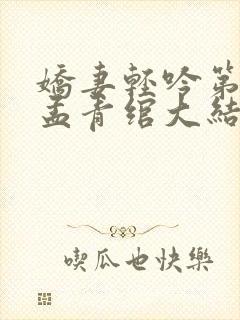 嬌妻輕吟第
孟青綰大結
喫瓜也快樂